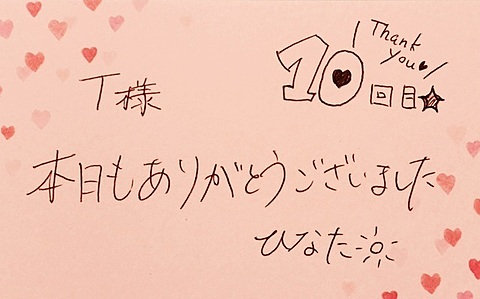 Thank
you♥
10回目★
T様
本日もありがとうございました
ひなた